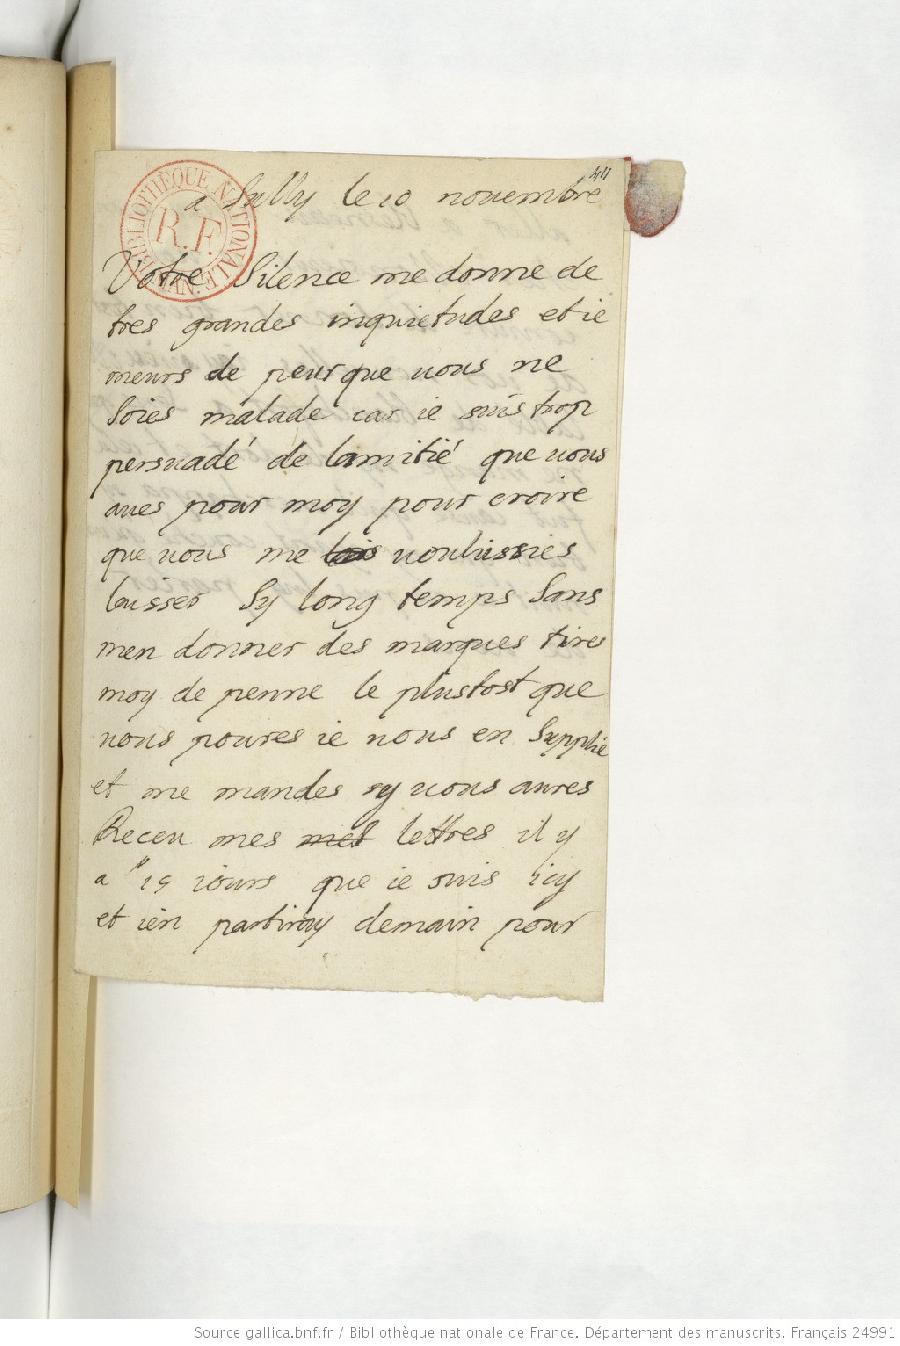 411
a Sully le 10 novembre
Votre Silence me donne de
tres grandes inquietudes et ie
meurs de peur que vous ne
soies malade car ie suis trop
persuadé de lamitié que vous
aues pour moy pour croire
que vous me voulussies
laisser sy long temps sans
men donner des marques tires
moy de penne le plustost que
vous poures ie vous en supplie
et me mandes sy vous aures
Receu mes mes lettres il y
a 15 iours que ie suis icy
et ien partiray demain pour
BIBLIOTHEQUE NATIONALE MAN.
R.F.
Source gallica.bnf.fr / Bibliothèque nationale de France. Département des manuscrits. Français 24991